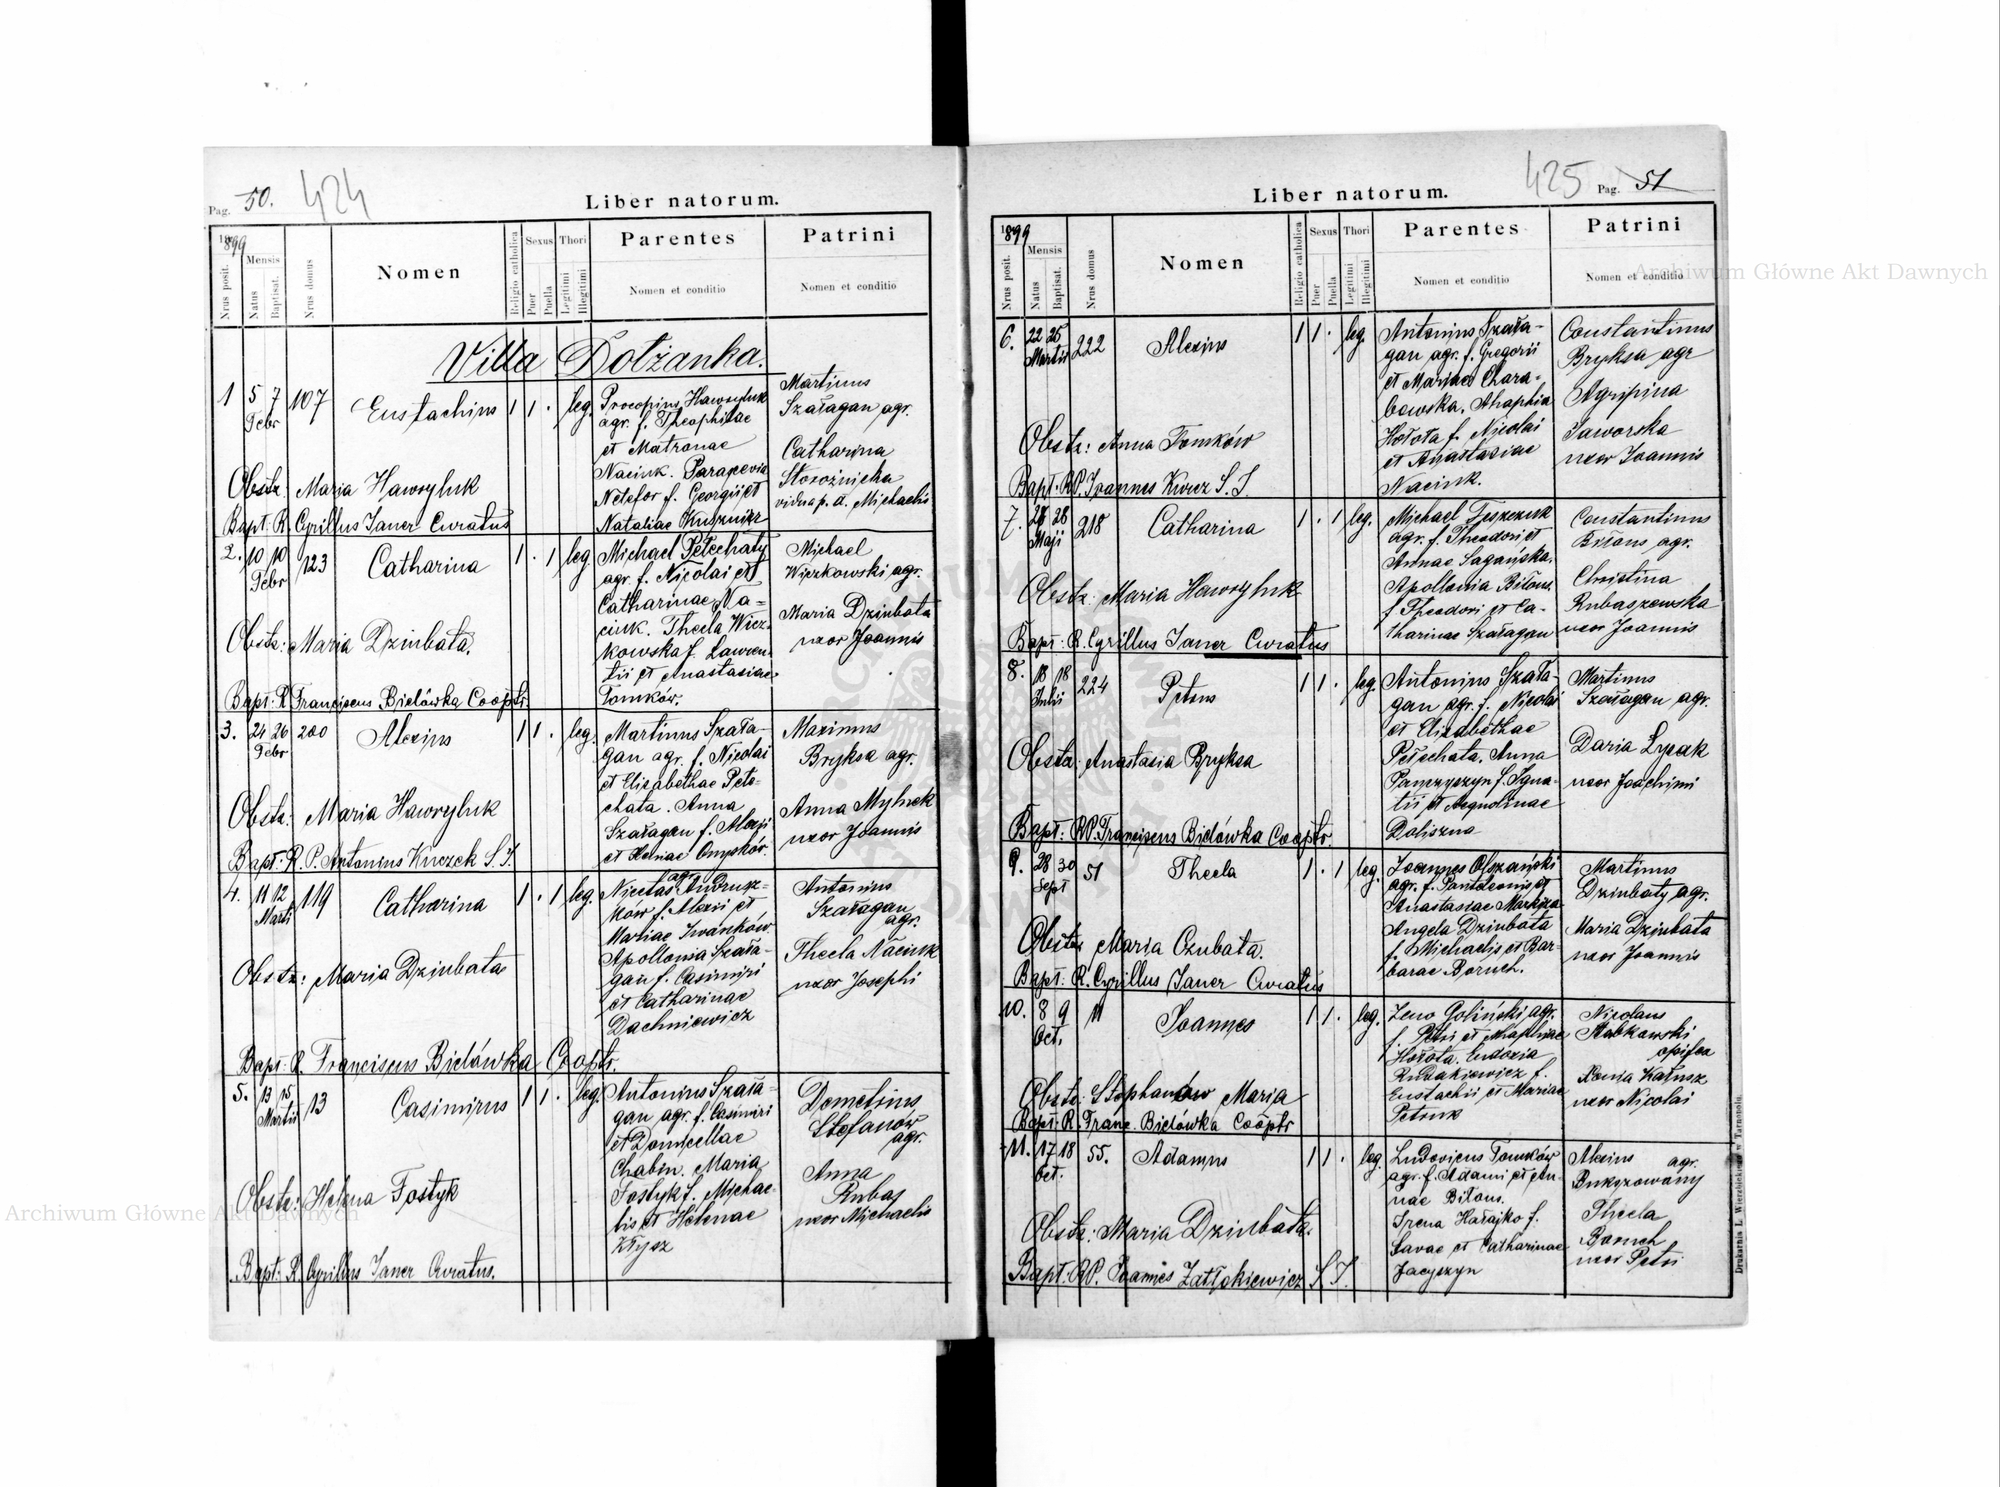 Pag. 50. 424
Liber natorum.
1899
Nrus posit.
Mensis
Natus
Baptisat.
Nrus domus
Nomen
Religio catholica
Sexus
Puer
Puella
Thori
Legitimi
Illegitimi
Parentes
Nomen et conditio
Patrini
Nomen et conditio
Villa Dołżanka.
1 5 7 Febr 107 Eustachius 1 1 . leg.
Procopius Hawryluk
agr. f. Theophilae
et Matronae
Naciuk. Parapevia
Netefor f. Georgii et
Nataliae Kusznier
Martinus
Szałagan agr.
Catharina
Storożnicka
vidua p. d. Michaelis
Obstz: Maria Hawryluk
Bapt: R. Cyrillus Janer Curatus
2. 10 10 Febr 123 Catharina 1 . 1 leg.
Michael Petechaty
agr. f. Nicolai et
Catharinae Na-
ciuk. Thecla Wicz-
kowska f. Lauren-
tii et Anastasiae
Tomków.
Michael
Wiczkowski agr.
Maria Dziubata
uxor Joannis
Obstz: Maria Dziubata.
Bapt: R. Franciscus Bielówka Cooptr.
3. 24 26 Febr 200 Alexius 1 1 . leg.
Martinus Szała-
gan agr. f. Nicolai
et Elisabethae Pete-
chata. Anna
Szałagan f. Alexii
et Xeniae Onyśków.
Maximus
Bryksa agr.
Anna Mylnek
uxor Joannis
Obstz: Maria Hawryluk
Bapt: R. P. Antonius Kuczek S. J.
4. 11 12 Marti 119 Catharina 1 . 1 leg.
Nicetas agr. Andrusz-
ków f. Alexii et
Mariae Iwanków
Apollonia Szała-
gan f. Casimiri
et Catharinae
Dachniewicz
Antonius
Szałagan
agr.
Thecla Naciuk
uxor Josephi
Obstz: Maria Dziubata
Bapt: R. Franciscus Bielówka Cooptr.
5. 13 15 Martii 13 Casimirus 1 1 . leg.
Antonius Szała-
gan agr. f. Casimiri
et Domicellae
Chabin. Maria
Fostyk f. Michae-
lis et Helenae
Kłysz
Demetrius
Stefanów
agr.
Anna
Rubas
uxor Michaelis
Obstz: Helena Fostyk
Bapt: R. Cyrillus Janer Curatus.
Liber natorum.
425 Pag. 51
1899
Nrus posit.
Mensis
Natus
Baptisat.
Nrus domus
Nomen
Religio catholica
Sexus
Puer
Puella
Thori
Legitimi
Illegitimi
Parentes
Nomen et conditio
Patrini
Nomen et conditio
6. 22 25 Martii 222 Alexius 1 1 . leg.
Antonius Szała-
gan agr. f. Gregorii
et Mariae Chara-
bowska. Ahaphia
Hołota f. Nicolai
et Anastasiae
Naciuk.
Constantinus
Bryksa agr
Agripina
Jaworska
uxor Joannis
Obstz: Anna Tomków
Bapt: RP. Joannes S. J.
7. 28 28 Maji 218 Catharina 1 . 1 leg.
Michael
agr. f. Theodori et
Annae Sagańska.
Apollonia Bilous
f Theodori et Ca-
tharinae Szałagan
Constantinus
Bilous agr.
Christina
Rubaszewska
uxor Joannis
Obstz: Maria Hawryluk
Bapt: R. Cyrillus Janer Curatus
8. 18 18 Julii 224 Petrus 1 1 . leg.
Antonius Szała-
gan agr. f. Nicolai
et Elisabethae
Petechata. Anna
Panczyszyn f. Igna-
tii et
Doliszna
Martinus
Szałagan agr.
Daria Łysak
uxor Joachimi
Obstz: Anastasia Bryksa
Bapt: RP. Franciscus Bielówka Cooptr.
9. 28 30 Sept 51 Thecla 1 . 1 leg.
Joannes Olszański
agr. f. Pantaleonis et
Anastasiae
Angela Dziubata
f. Michaelis et Bar-
barae Boruch.
Martinus
Dziubaty agr.
Maria Dziubata
uxor Joannis
Obstz Maria Czubata.
Bapt: R. Cyrillus Janer Curatus
10. 8 9 Oct. 11 Joannes 1 1 . leg.
Zeno Goliński agr.
f. Petri et Ahaphiae
Hołota. Eudoxia
Rudakiewicz f.
Eustachii et Mariae
Petruk
Nicolaus
opifex
Xenia Kałusz
uxor Nicolai
Obstz: Stephanów Maria
Bapt: R. Franc. Bielówka Cooptr
11. 17 18 Oct. 55. Adamus 1 1 . leg.
Ludovicus Tomków
agr. f. Adami et An-
nae Bilous.
Irena Hałajko f.
Savae et Catharinae
Jacyszyn
Alexius agr.
Thecla
Boruch
uxor Petri
Obstz: Maria Dziubata.
Bapt. RP. Joannes S. J.
Drukarnia L. Wierzbickiego w Tarnopolu.
Archiwum Główne Akt Dawnych
Archiwum Główne Akt Dawnych